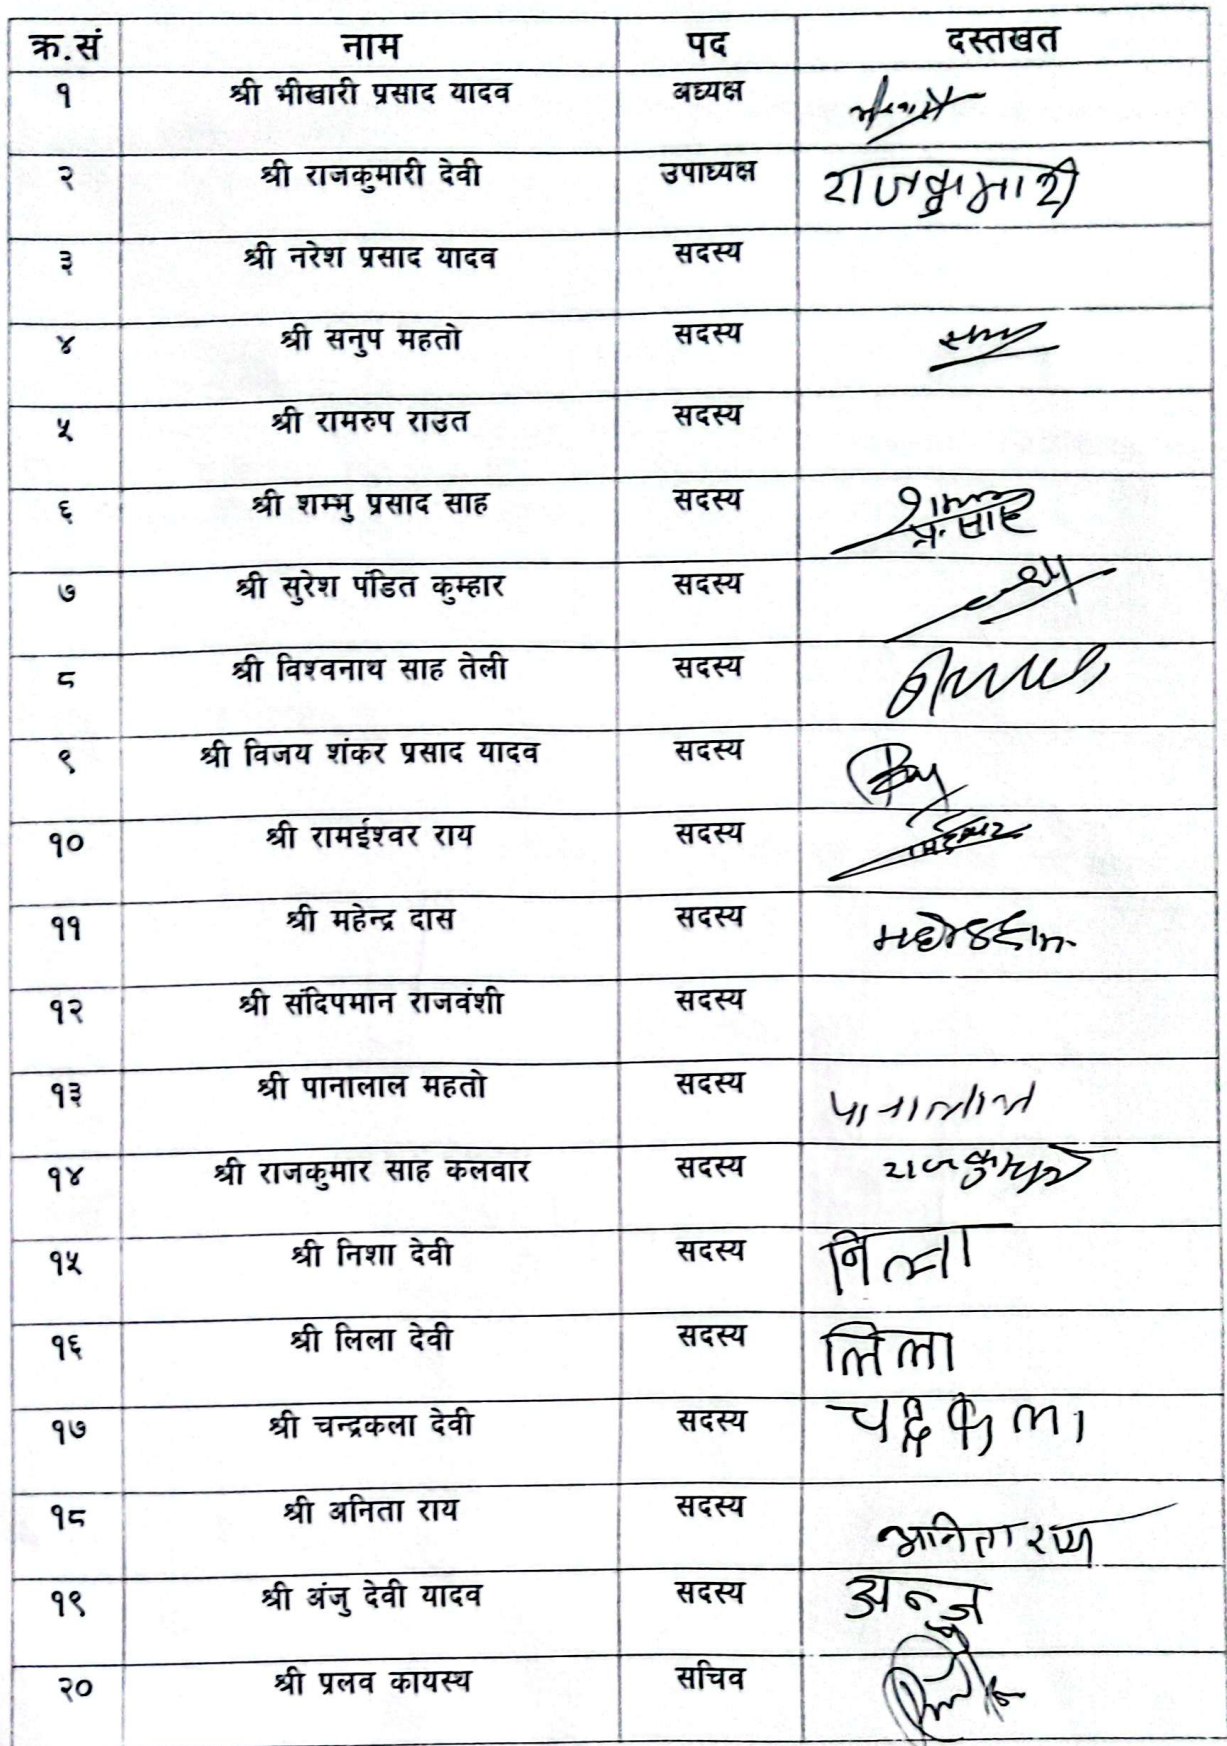 क्र.सं नाम पद दस्तखत
१ श्री भीखारी प्रसाद यादव अध्यक्ष
२ श्री राजकुमारी देवी उपाध्यक्ष राजकुमारी
३ श्री नरेश प्रसाद यादव सदस्य
४ श्री सनुप महतो सदस्य
५ श्री रामरुप राउत सदस्य
६ श्री शम्भु प्रसाद साह सदस्य
७ श्री सुरेश पंडित कुम्हार सदस्य
८ श्री विश्वनाथ साह तेली सदस्य
९ श्री विजय शंकर प्रसाद यादव सदस्य
१० श्री रामईश्वर राय सदस्य
११ श्री महेन्द्र दास सदस्य
१२ श्री संदिपमान राजवंशी सदस्य
१३ श्री पानालाल महतो सदस्य पानालाल
१४ श्री राजकुमार साह कलवार सदस्य राजकुमार
१५ श्री निशा देवी सदस्य
१६ श्री लिला देवी सदस्य लिला
१७ श्री चन्द्रकला देवी सदस्य
१८ श्री अनिता राय सदस्य अनिता राय
१९ श्री अंजु देवी यादव सदस्य अन्जु
२० श्री प्रलव कायस्थ सचिव